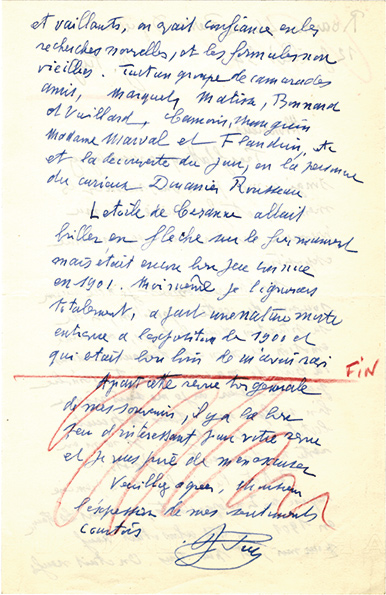 et vaillants, on avait confiance en les
recherches nouvelles, et les formules non
vieillies. Tout un groupe de camarades
amis, Marquet, Matisse, Bonnard
et Vuillard, Camoin, Manguin
Madame Marval et Flandrin, etc
et la decouverte du jour, en la personne
du curieux Douanier Rousseau
L'etoile de Cezanne allait
briller en fleche sur le firmament
mais était encore bien peu connue
en 1901. Moi même je l'ignorais
totalement, a part une nature morte
entrevue a l'exposition de 1900 et
qui était bien loin de m'avoir ravi
FIN
Apart cette revue tres generale
de mes souvenirs, il y a la bien
peu d'interessant pour votre revue
et je vous prie de m'en excuser
Veuillez agréer, Monsieur
l'expression de mes sentiments
courtois
J Puy